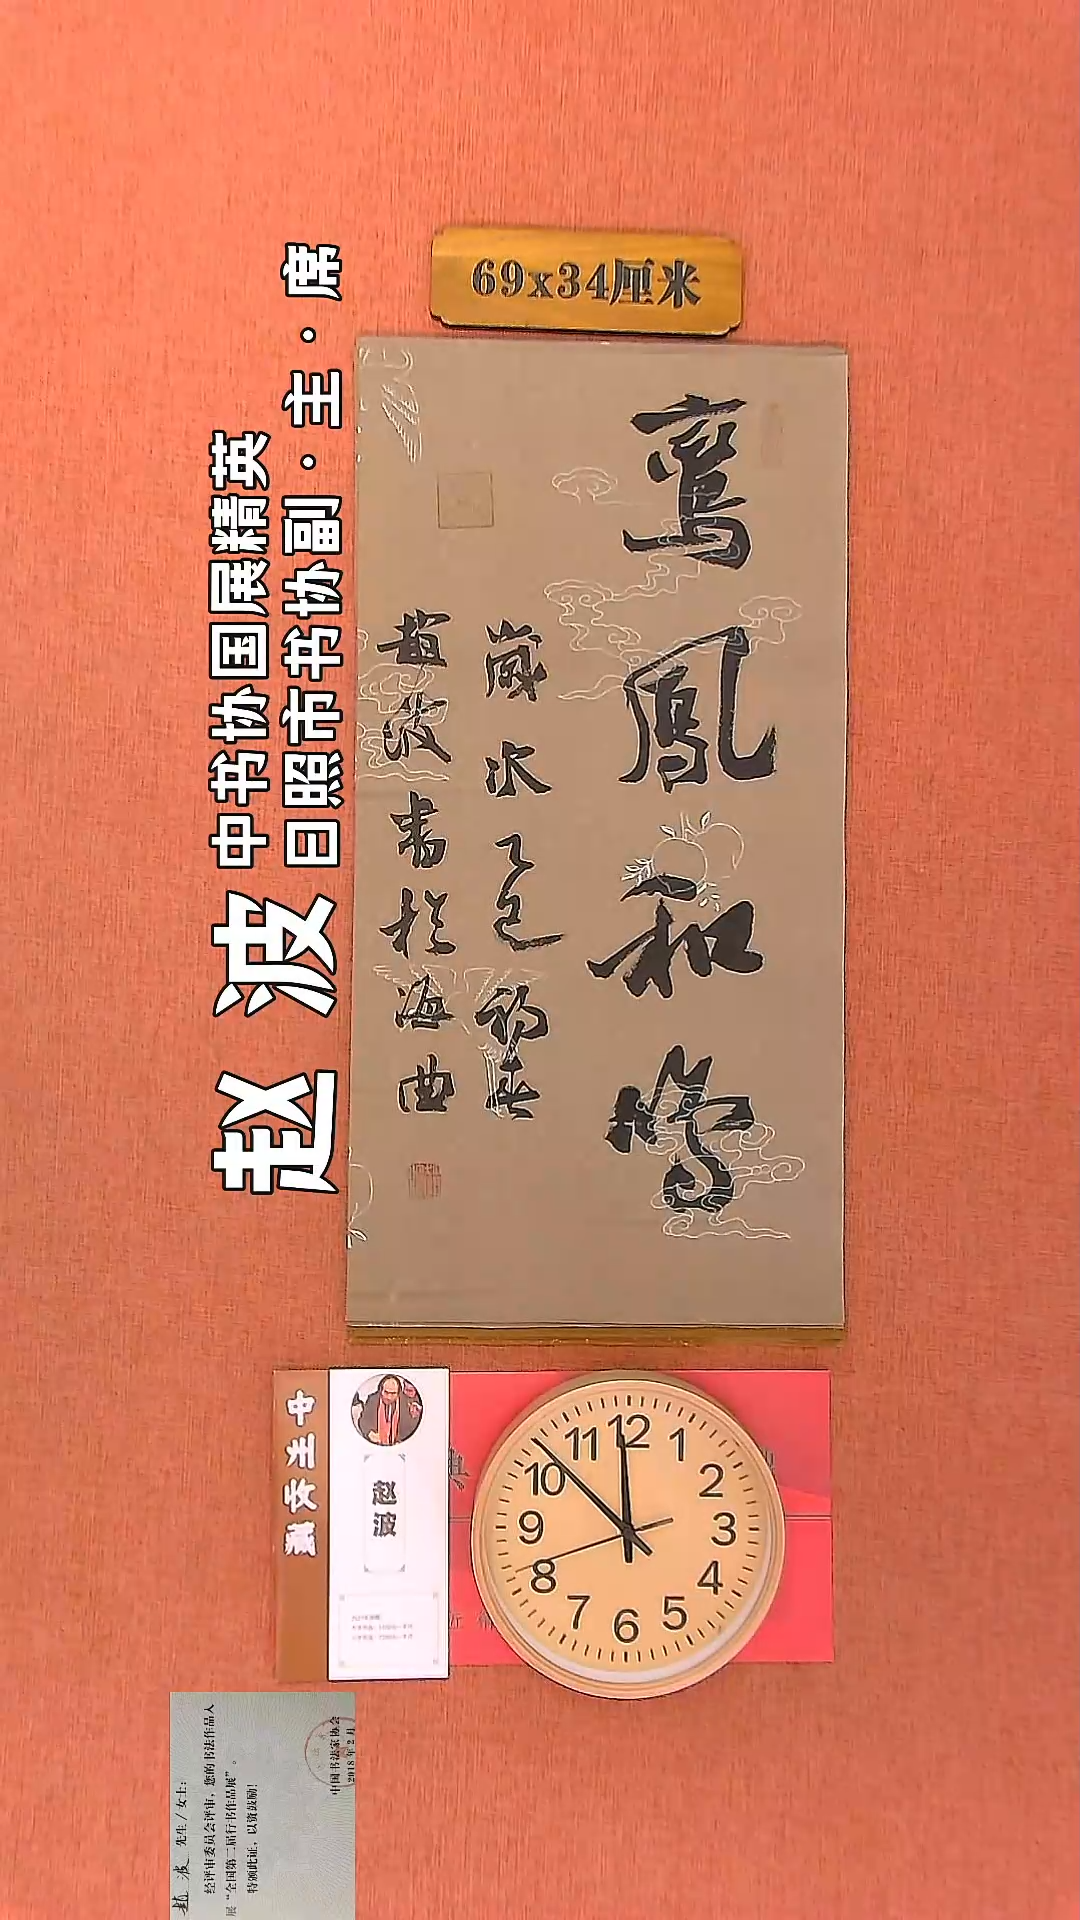 69x34厘米
中书协国展精英
日照市书协副·主·席
赵波
鸞鳳和鸣
歲次乙巳初春
趙波書於海曲
赵波
12
1
2
3
4
5
6
7
8
9
10
11
趙波 先生/女士：
经评审委员会评审，您的书法作品入
展“全国第二届行书作品展”。
特颁此证，以资鼓励！
中国书法家协会
2018年2月